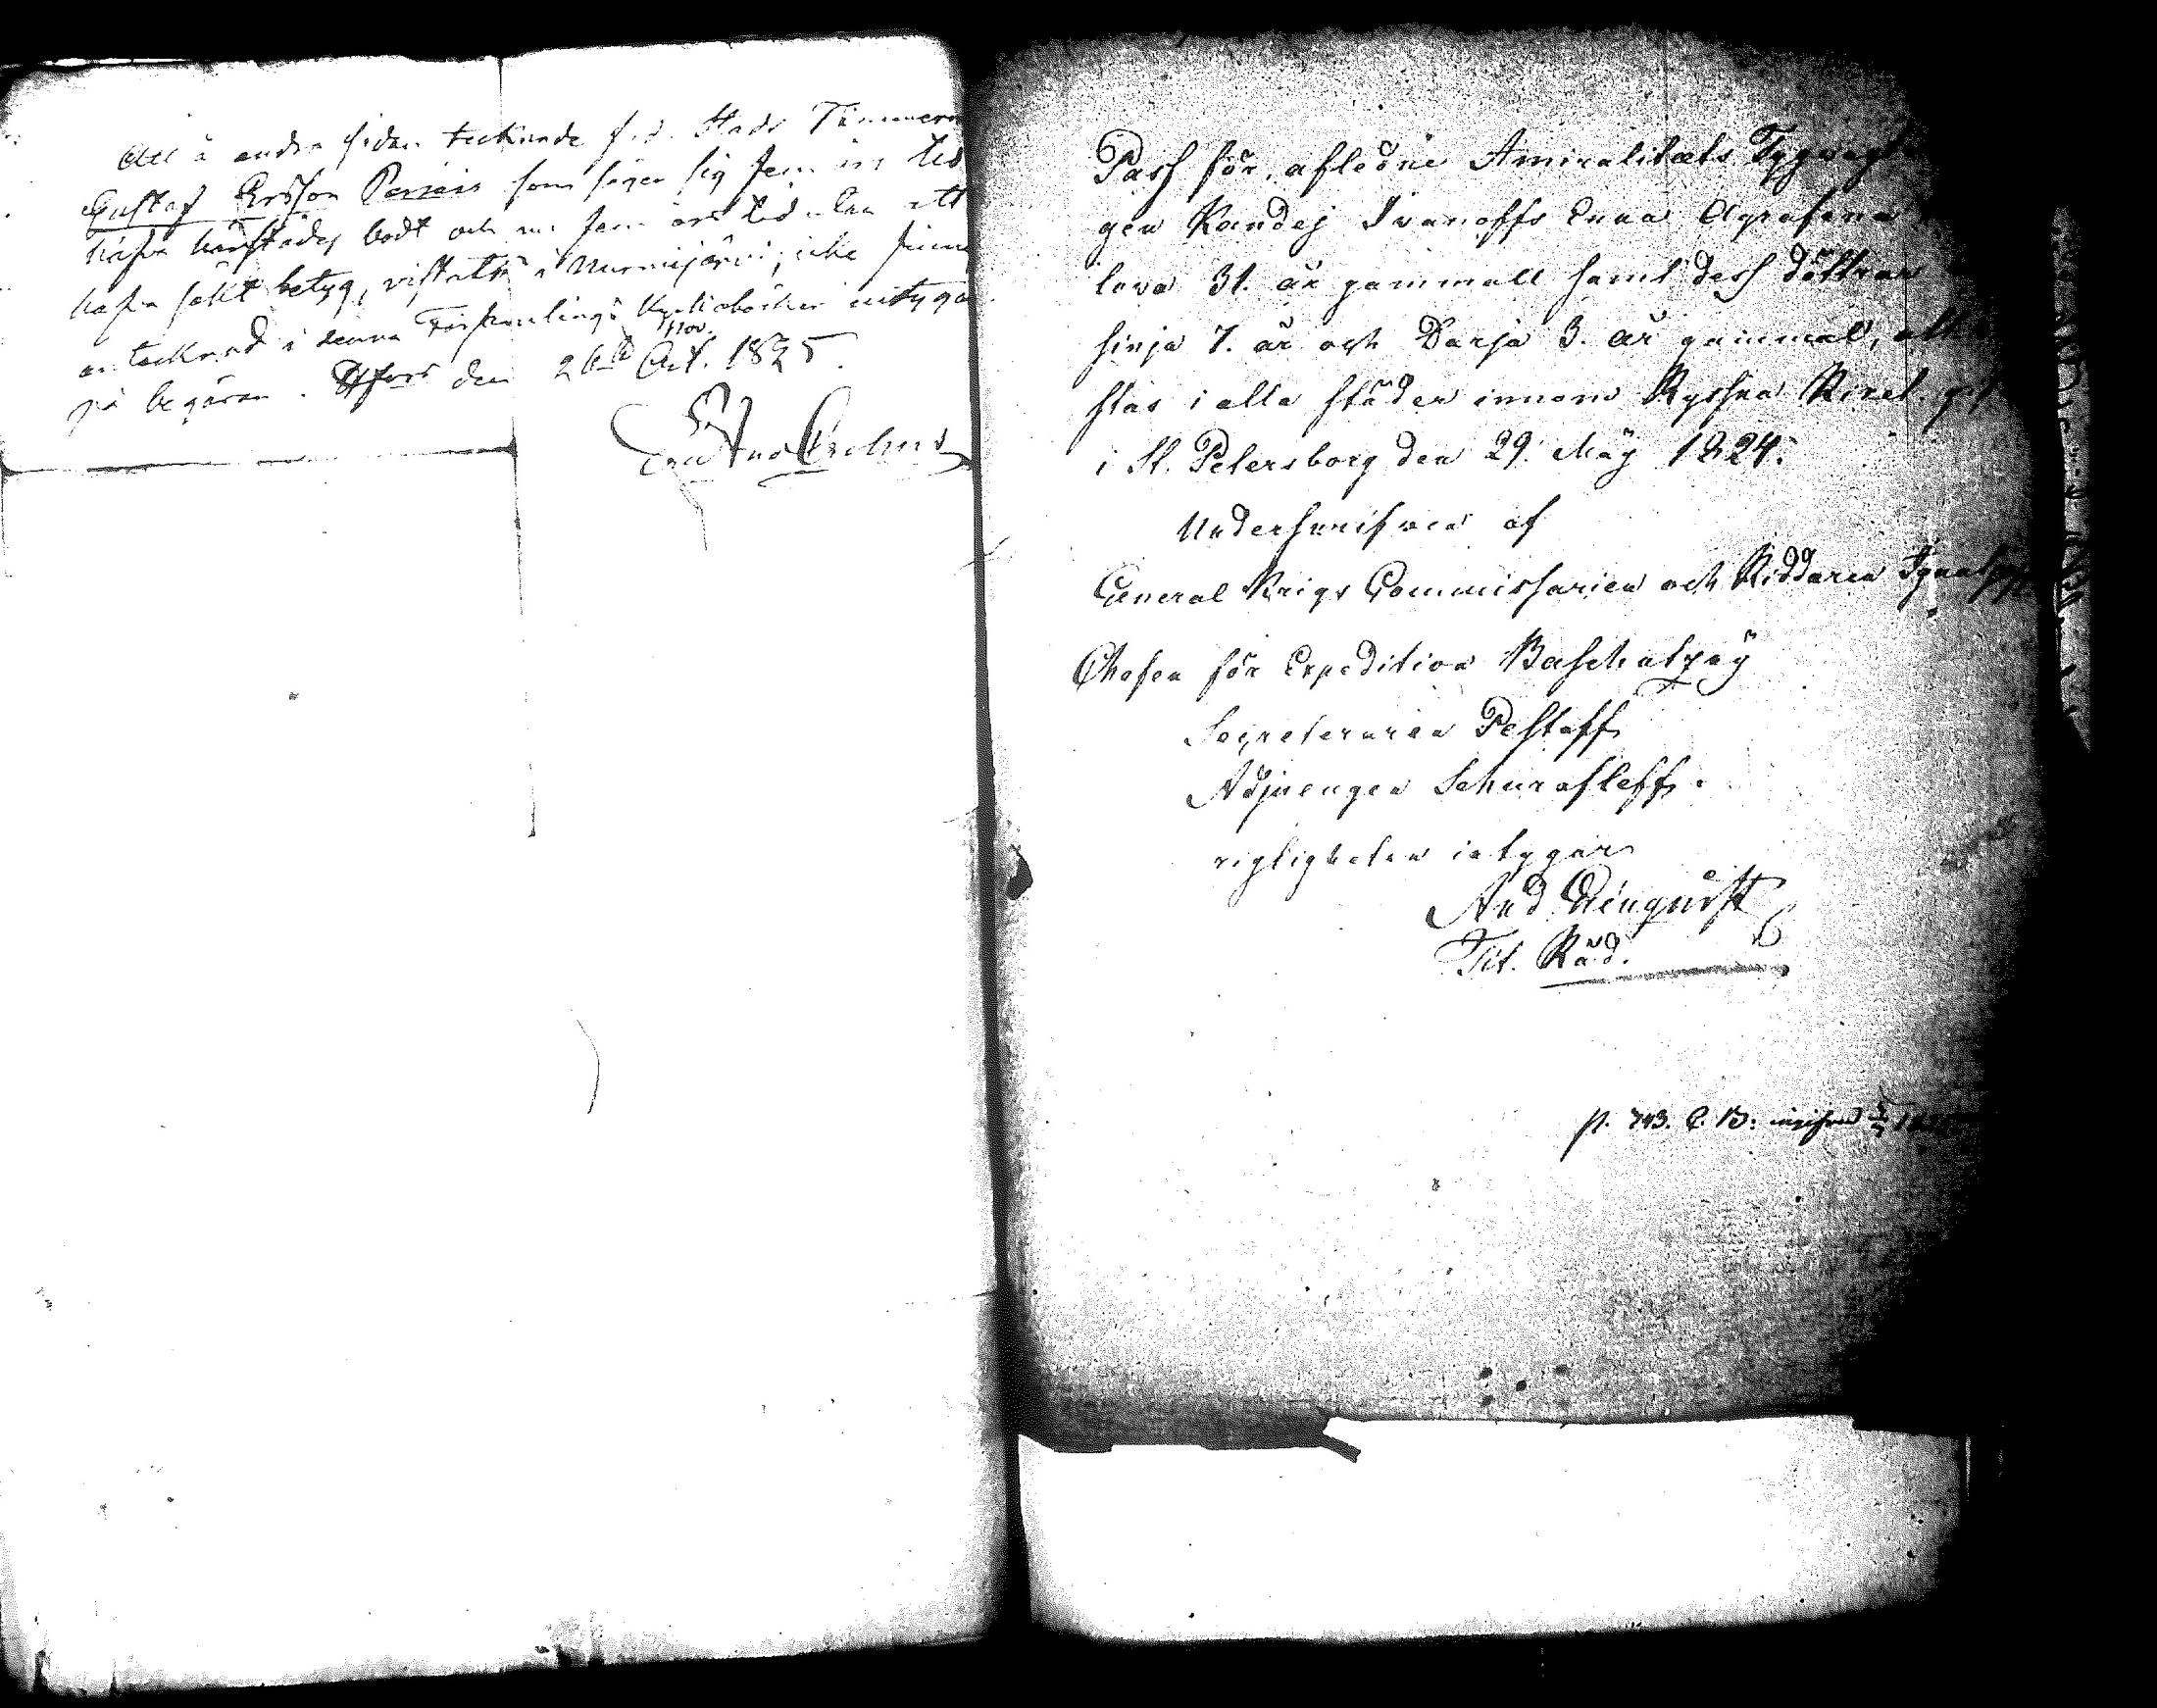 Att å andra sidan tecknade f.d. Stads Timmerm
Gustaf Ersson som säger sig fem års tid
hafva härstädes bodt och nu fem års tid utan att
hafva sökt betyg, vistats i Nurmijärvi, icke finnes
antecknad i denna Församlings Kyrkoböcker intygar
Nov.
på begäran. Hfors den 26te Oct. 1825.
Pass för aflidne Amiralitets
gen Kandej Ivanoffs Enka Agrafena
lova 31. år gammall samt dess döttrar
sinja 7. år och Darja 3. år gammal, att
stas i alla städer innom Ryska Riket.
i St. Petersborg den 29. Maÿ 1824.
Underskrifven af
General Krigs Commissarien och Riddaren
Chefen för Expedition
Secreteraren Pestoff
Schurafleff.
rigtigheten intygar
And
Tit. Råd.
p. 743. C. B: ingifved